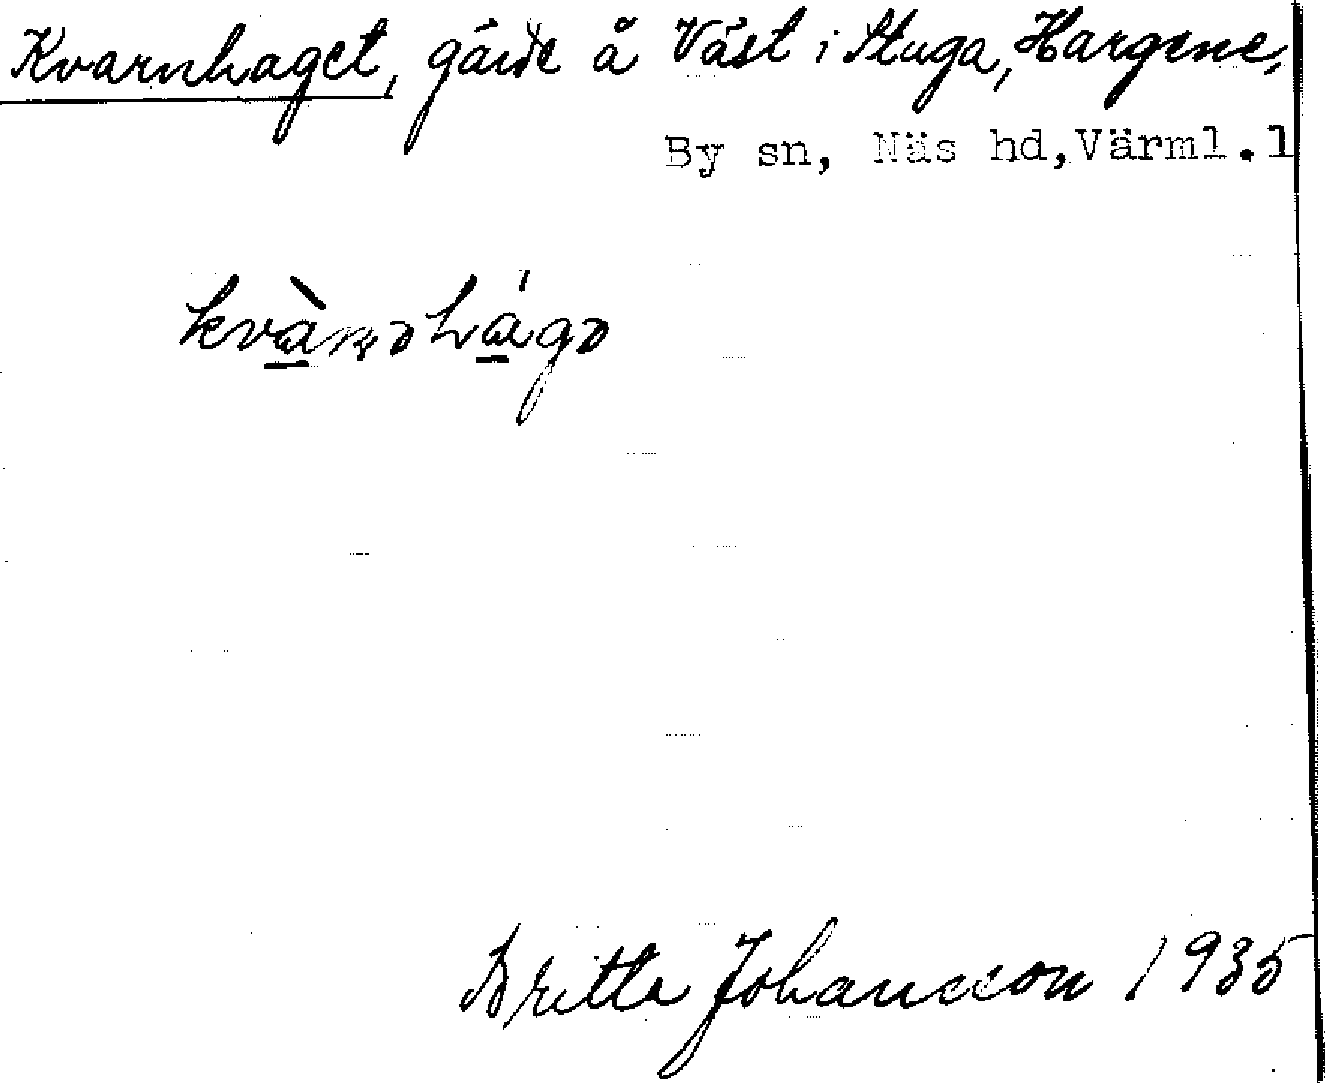 Kvarnhaget, gärde å Väst i Stuga, Hargene,
By sn, Näs hd, Värml.l
Britta Johansson 1935